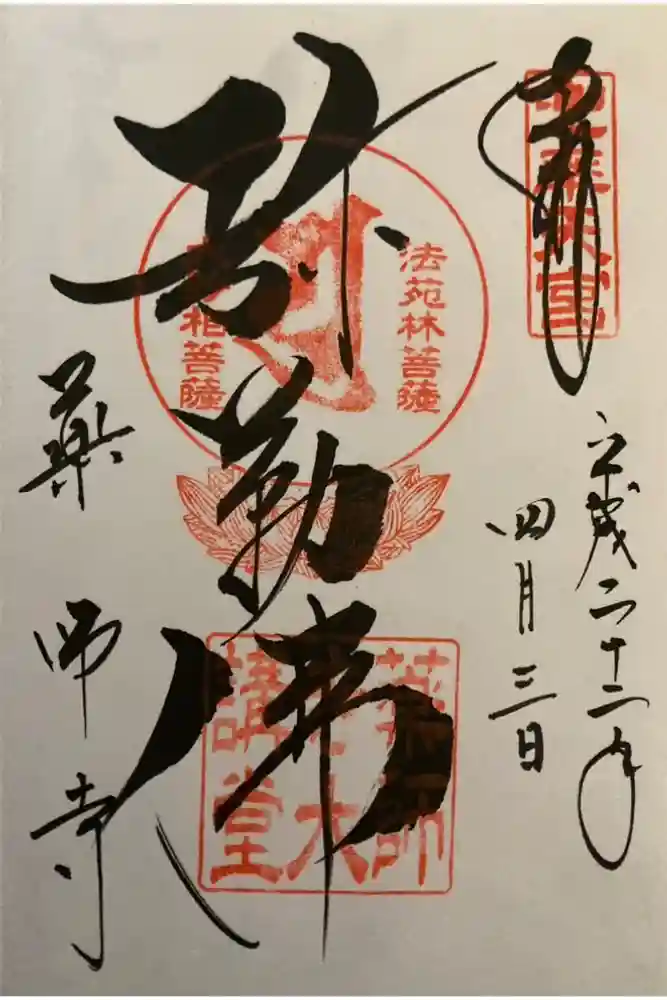 奉拝
平成二十二年
四月三日
弥勒佛
法苑林菩薩
相菩薩
薬師寺大講堂
薬師寺